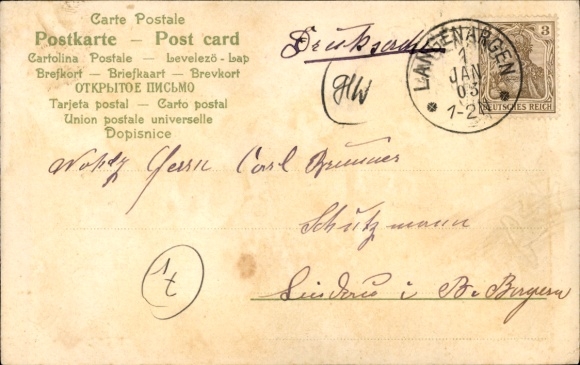 Carte Postale
Postkarte — Post card
Cartolina Postale — Levelező-Lap
Brefkort — Briefkaart — Brevkort
ОТКРЫТОЕ ПИСЬМО
Tarjeta postal — Carto postal
Union postale universelle
Dopisnice
Drucksache
HW
LANGENARGEN
1
JAN
03
1-2N
3
DEUTSCHES REICH
Herrn Carl Brunner
Schutzmann
Lindau i B. Bayern
17